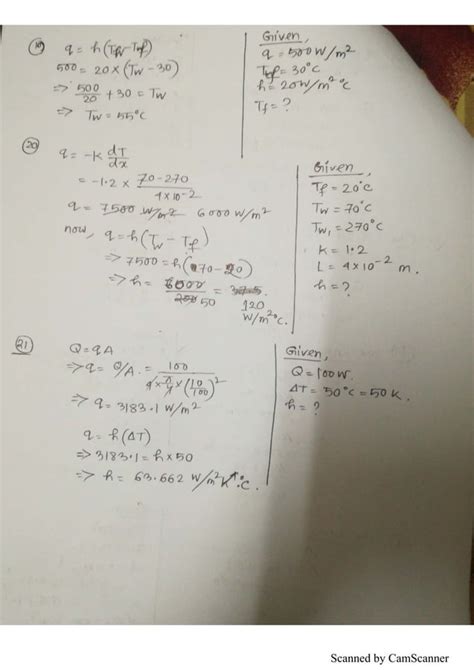 19) q = h(Tw - Tf)
500 = 20 × (Tw - 30)
=> 500/20 + 30 = Tw
=> Tw = 55°C
Given,
q = 500 W/m²
Tf = 30°C
h = 20 W/m² °C
Tf = ?
20) q = -K dT/dx
= -1.2 × (70 - 270)/(4 × 10-2)
q = 7500 W/m² 6000 W/m²
now, q = h(Tw - Tf)
=> 7500 = h(70 - 20)
=> h = 6000/50 = 120
W/m²°C.
Given
Tf = 20°C
Tw = 70°C
Tw1 = 270°C
K = 1.2
L = 4 × 10-2 m.
h = ?
21) Q = qA
=> q = Q/A = 100/(4 × π × (10/100)²)
=> q = 3183.1 W/m²
q = h(ΔT)
=> 3183.1 = h × 50
=> h = 63.662 W/m² °C.
Given,
Q = 100W.
ΔT = 50°C = 50K.
h = ?
Scanned by CamScanner